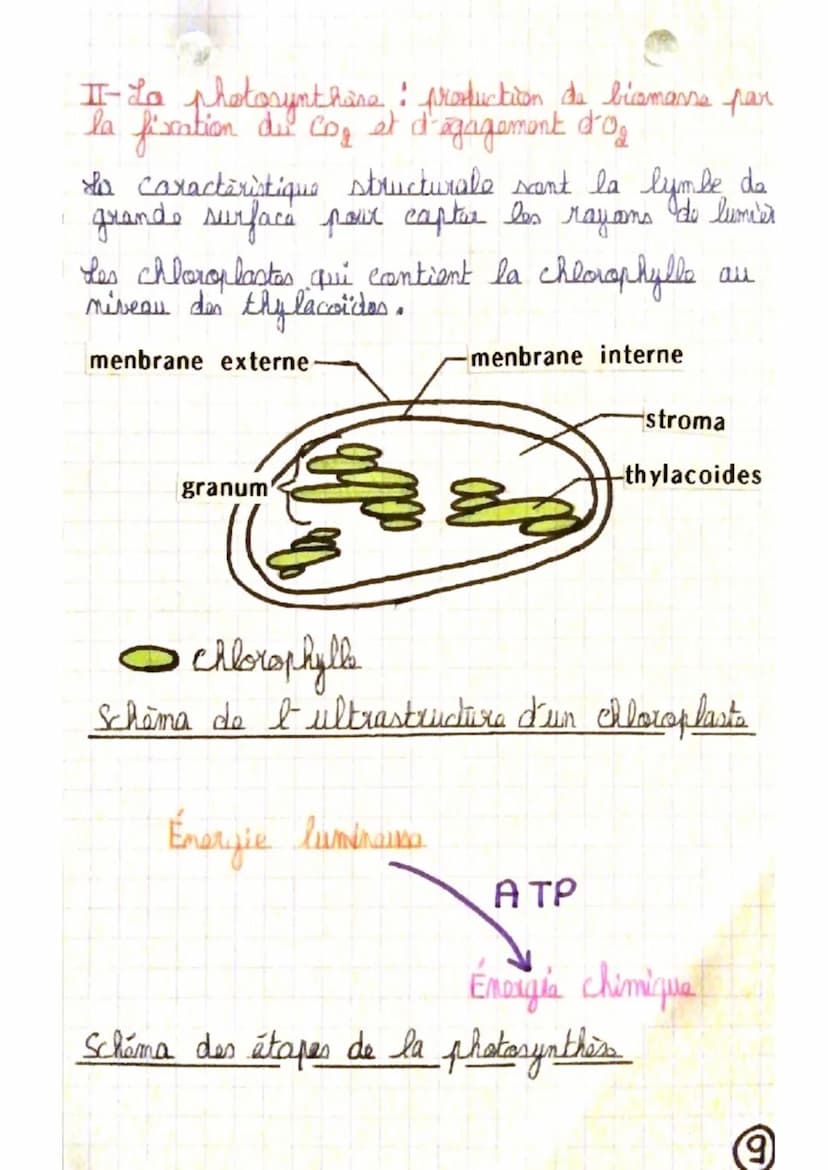 II- La photosynthèse : production de biomasse par
la fixation du CO2 et d'égagement d'O2
La caractéristique structurale sont la lymbe de
grande surface pour capter les rayons de lumièr
Les chloroplastes qui contient la chlorophylle au
niveau des thylacoïdes.
menbrane externe
menbrane interne
stroma
granum
thylacoides
chlorophylle
Schéma de l'ultrastructure d'un chloroplaste
Énergie lumineuse
ATP
Énergie chimique
Schéma des étapes de la photosynthèse
9